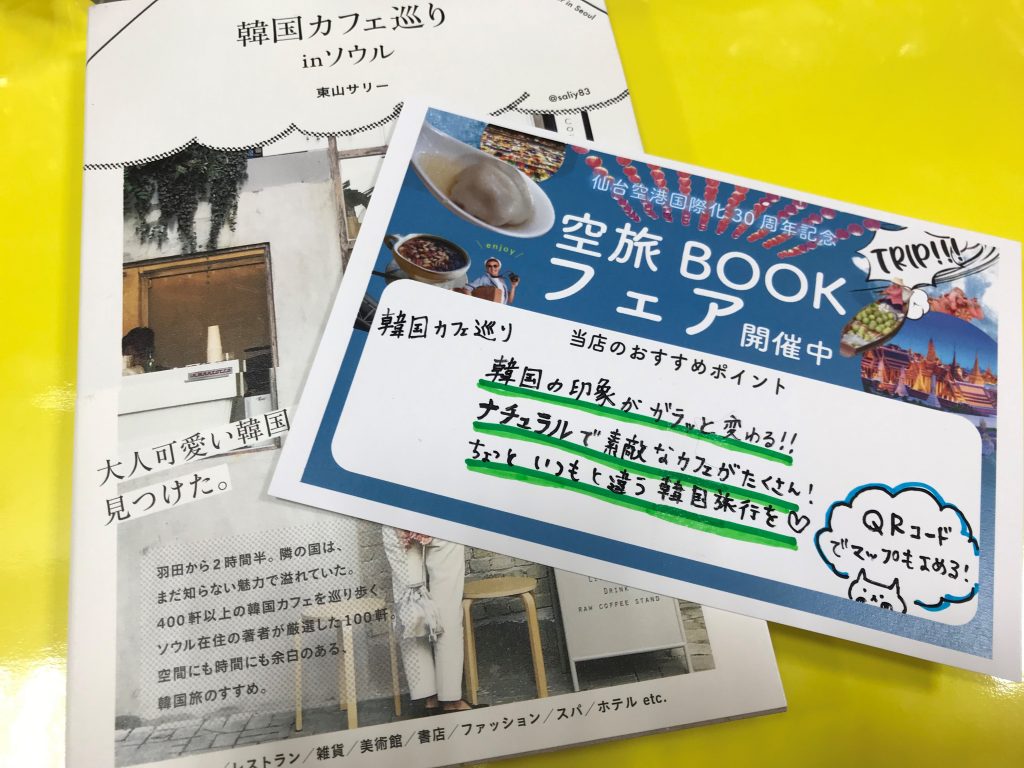 in Seoul
韓国カフェ巡り
inソウル
東山サリー
@saliy83
大人可愛い韓国
見つけた。
羽田から2時間半。隣の国は、
まだ知らない魅力で溢れていた。
400軒以上の韓国カフェを巡り歩く
ソウル在住の著者が厳選した100軒。
空間にも時間にも余白のある、
韓国旅のすすめ。
レストラン/雑貨/美術館/書店/ファッション/スパ/ホテル etc.
DRINK
RAW COFFEE STAND
仙台空港国際化30周年記念
空旅 BOOK
フェア開催中
enjoy
TRIP!!!
韓国カフェ巡り
当店のおすすめポイント
韓国の印象がガラッと変わる!!
ナチュラルで素敵なカフェがたくさん!
ちょっといつもと違う韓国旅行を♡
QRコード
でマップもよめる!